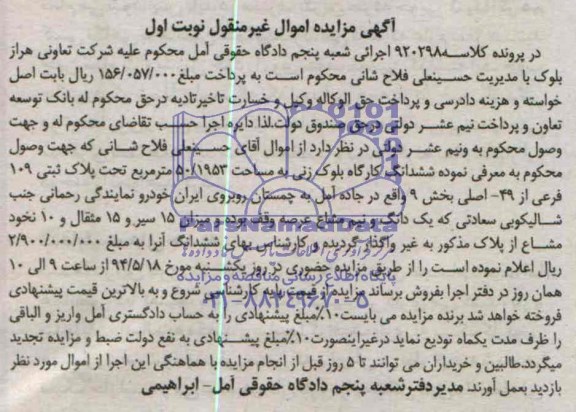 آگهی مزایده اموال غیرمنقول نوبت اول
در پرونده کلاسه۹۲۰۲۹۸ اجرائی شعبه پنجم دادگاه حقوقی آمل محکوم علیه شرکت تعاونی هراز
بلوک با مدیریت حسینعلی فلاح شانی محکوم است به پرداخت مبلغ۱۵۶/۰۵۷/۰۰۰ ریال بابت اصل
خواسته و هزینه دادرسی و پرداخت حق الوکاله وکیل و خسارت تاخیرتادیه درحق محکوم له بانک توسعه
تعاون و پرداخت نیم عشر دولتی درحق صندوق دولت.لذا دایره اجرا حسب تقاضای محکوم له و جهت
وصول محکوم به ونیم عشر دولتی در نظر دارد از اموال آقای حسینعلی فلاح شانی که جهت وصول
محکوم به معرفی نموده ششدانگ کارگاه بلوک زنی به مساحت ۵۰/۱۹۵۳ مترمربع تحت پلاک ثبتی ۱۰۹
فرعی از ۴۹- اصلی بخش ۹ واقع در جاده آمل به چمستان روبروی ایران خودرو نمایندگی رحمانی جنب
شالیکوبی سعادتی که یک دانگ و نیم مشاع عرصه وقف بوده و میزان ۱۵ سیر و ۱۵ مثقال و ۱۰ نخود
مشاع از پلاک مذکور به غیر واگذار گردیده و کارشناس بهای ششدانگ آنرا به مبلغ ۲/۹۰۰/۰۰۰/۰۰۰
ریال اعلام نموده است را از طریق مزایده حضوری در روز یکشنبه مورخ ۹۴/۵/۱۸ از ساعت ۹ الی ۱۰
همان روز در دفتر اجرا بفروش برساند مزایده از قیمت پایه کارشناسی شروع و به بالاترین قیمت پیشنهادی
فروخته خواهد شد برنده مزایده می بایست۱۰٪مبلغ پیشنهادی را به حساب دادگستری آمل واریز و الباقی
را ظرف مدت یکماه تودیع نماید درغیراینصورت۱۰٪مبلغ پیشنهادی به نفع دولت ضبط و مزایده تجدید
میگردد.طالبین و خریداران می توانند تا ۵ روز قبل از انجام مزایده با هماهنگی این اجرا از اموال مورد نظر
بازدید بعمل آورند. مدیردفترشعبه پنجم دادگاه حقوقی آمل- ابراهیمی
ParsNamadData
پایگاه اطلاع رسانی مناقصه و مزایده
۰۲۱-۸۸۳۴۹۶۷۰-۵